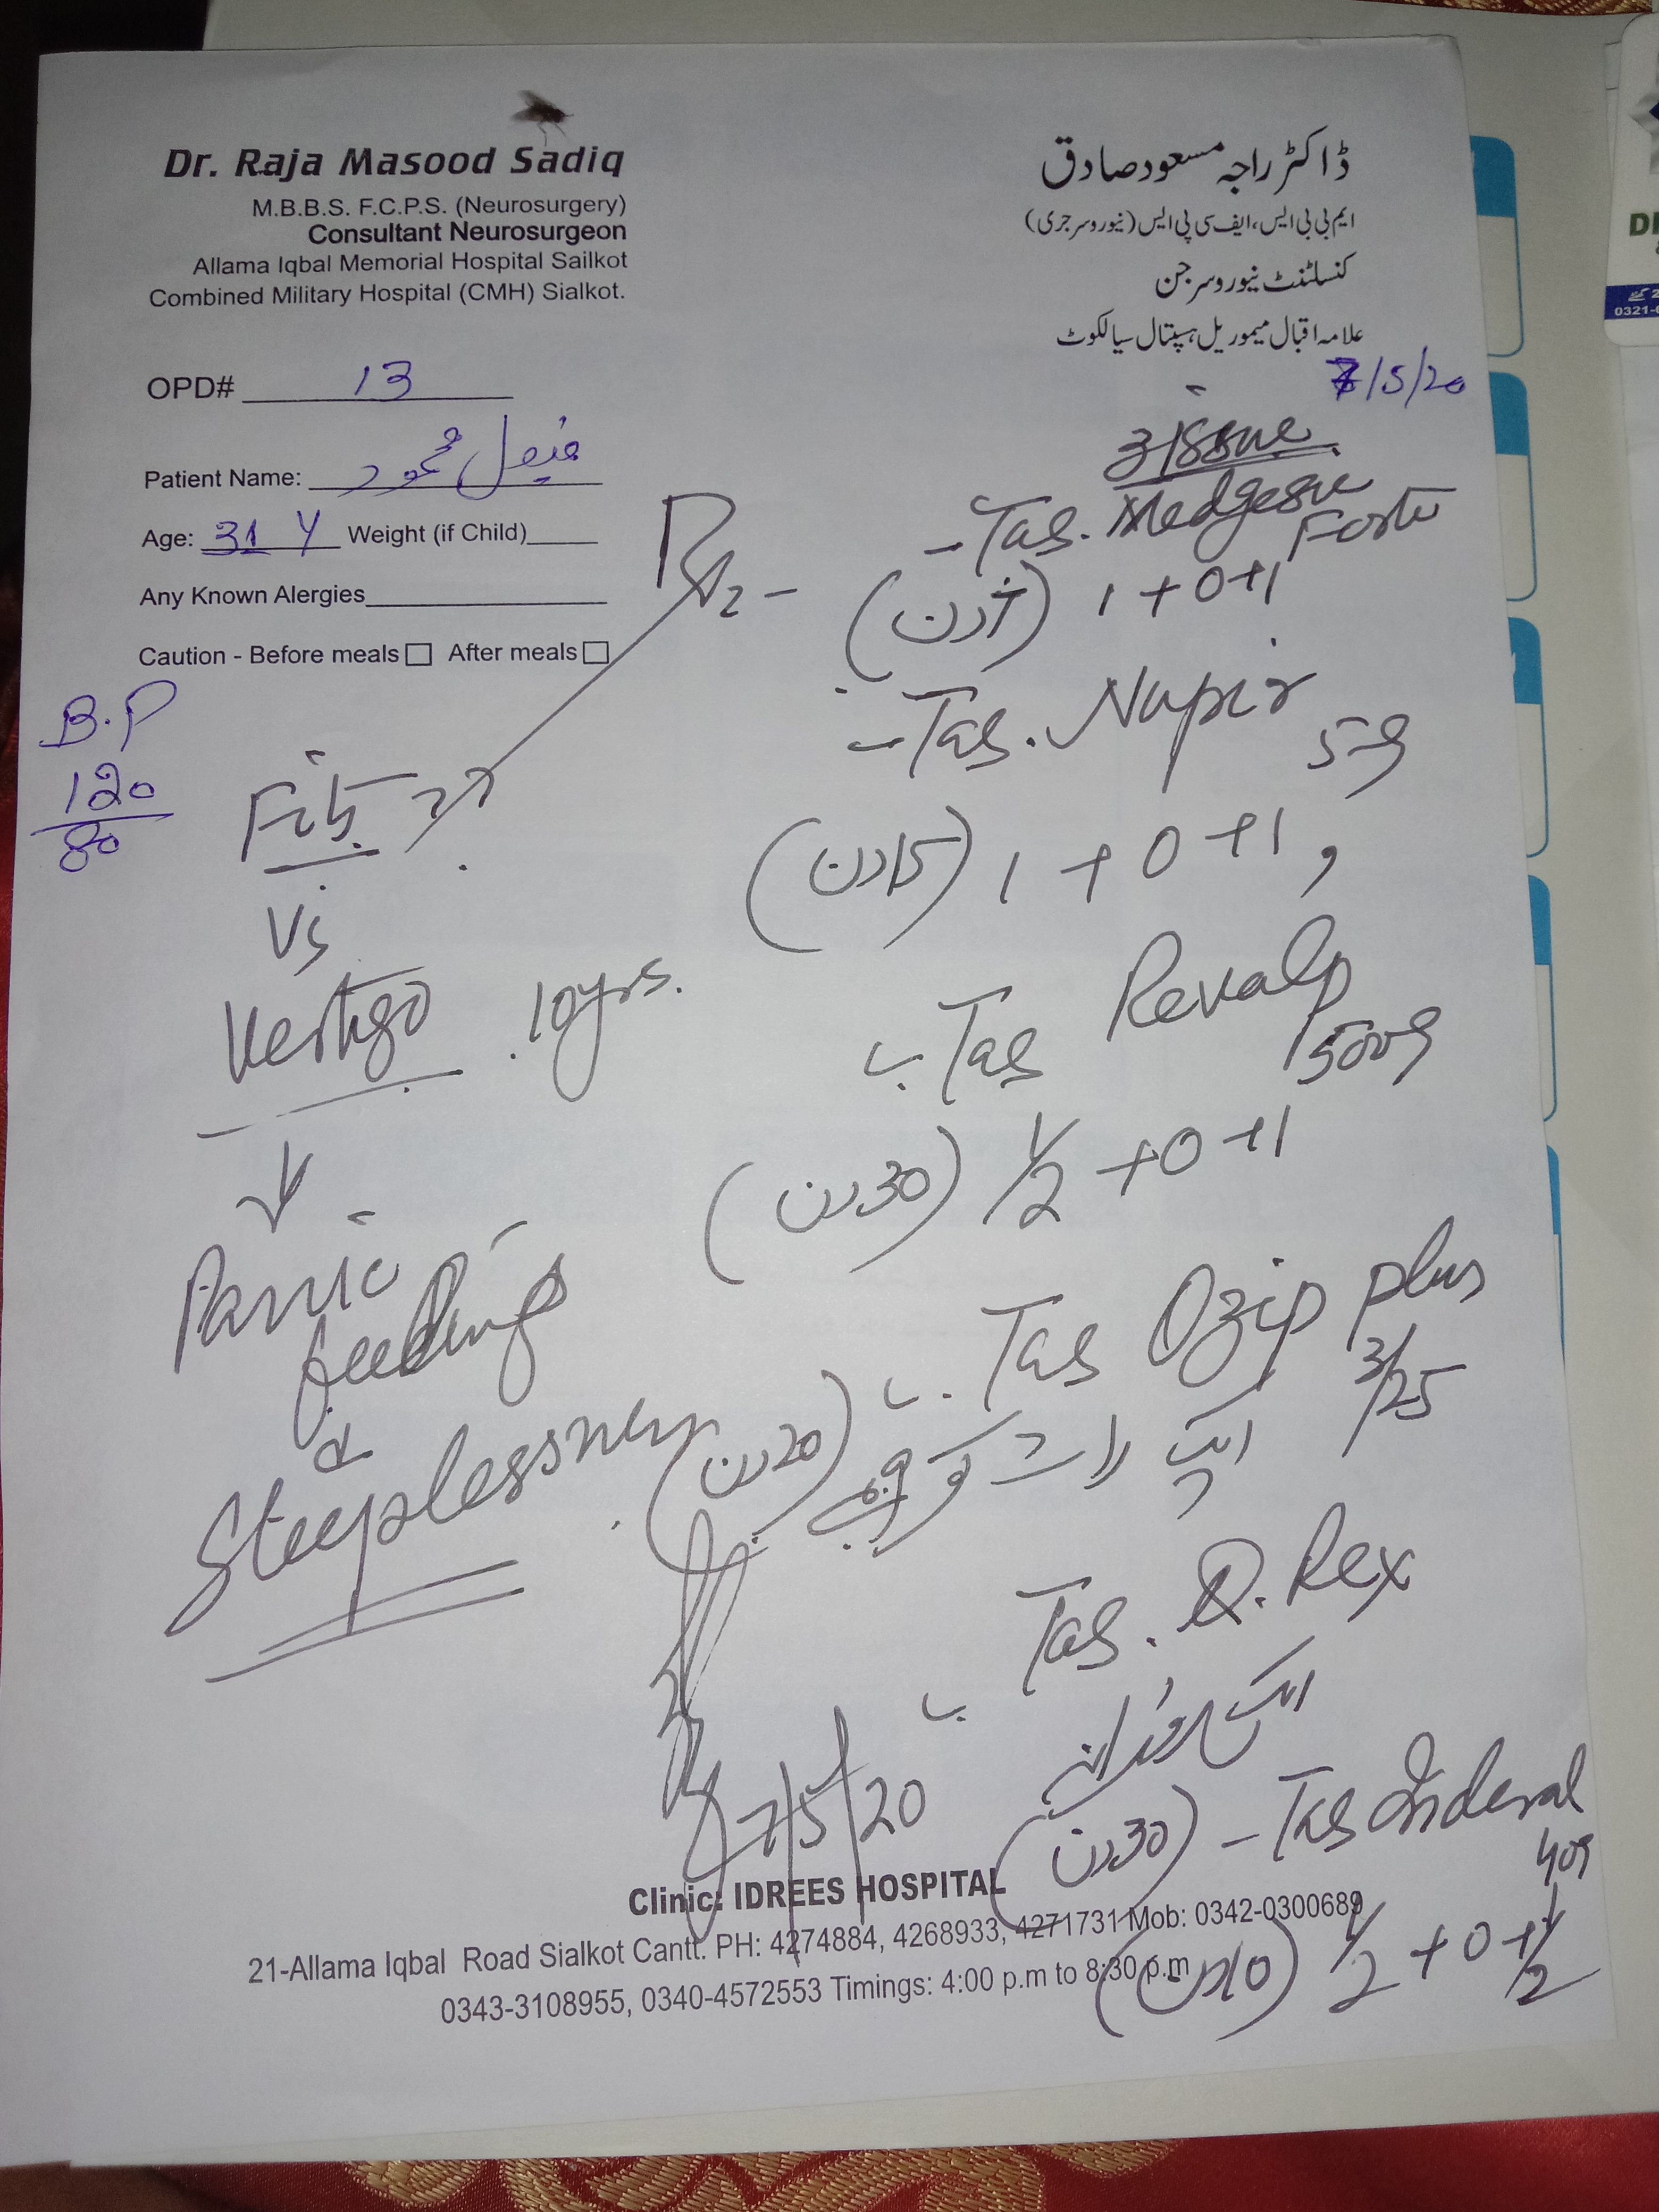 Dr. Raja Masood Sadiq
M.B.B.S. F.C.P.S. (Neurosurgery)
Consultant Neurosurgeon
Allama Iqbal Memorial Hospital Sailkot
Combined Military Hospital (CMH) Sialkot.
ڈاکٹر راجہ مسعود صادق
ایم بی بی ایس، ایف سی پی ایس (نیوروسرجری)
کنسلٹنٹ نیوروسرجن
علامہ اقبال میموریل ہسپتال سیالکوٹ
7/5/20
OPD# 13
Patient Name: محمود
Age: 31 Y Weight (if Child)
Any Known Alergies
Caution - Before meals After meals
B.P
120
80
Fits ??
Vs
Vertigo . 10yrs.
Panic
feelings
&
Sleeplessness
3 Issue
- Tab. Medgesic
Forte
1+0+1
- Tab. Nupir
5
(15 دن) 1+0+1
- Tab Revalp
500
(30 دن) 1/2+0+1
- Tab Ozip plus
3/25
ایک رات کو
(20 دن)
- Tab. D. Rex
ایک روزانہ
(30 دن)
- Tab Inderal
40
(10 دن) 1/2+0+1/2
7/5/20
Clinic: IDREES HOSPITAL
21-Allama Iqbal Road Sialkot Cantt. PH: 4274884, 4268933, 4271731 Mob: 0342-0300689
0343-3108955, 0340-4572553 Timings: 4:00 p.m to 8:30 p.m
0321-